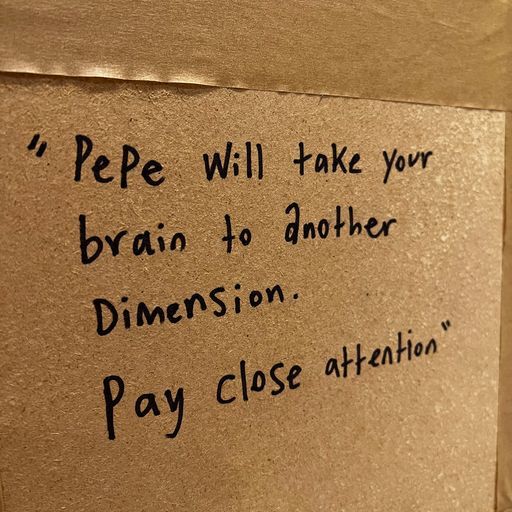 "PePe will take your
brain to another
Dimension.
Pay close attention"